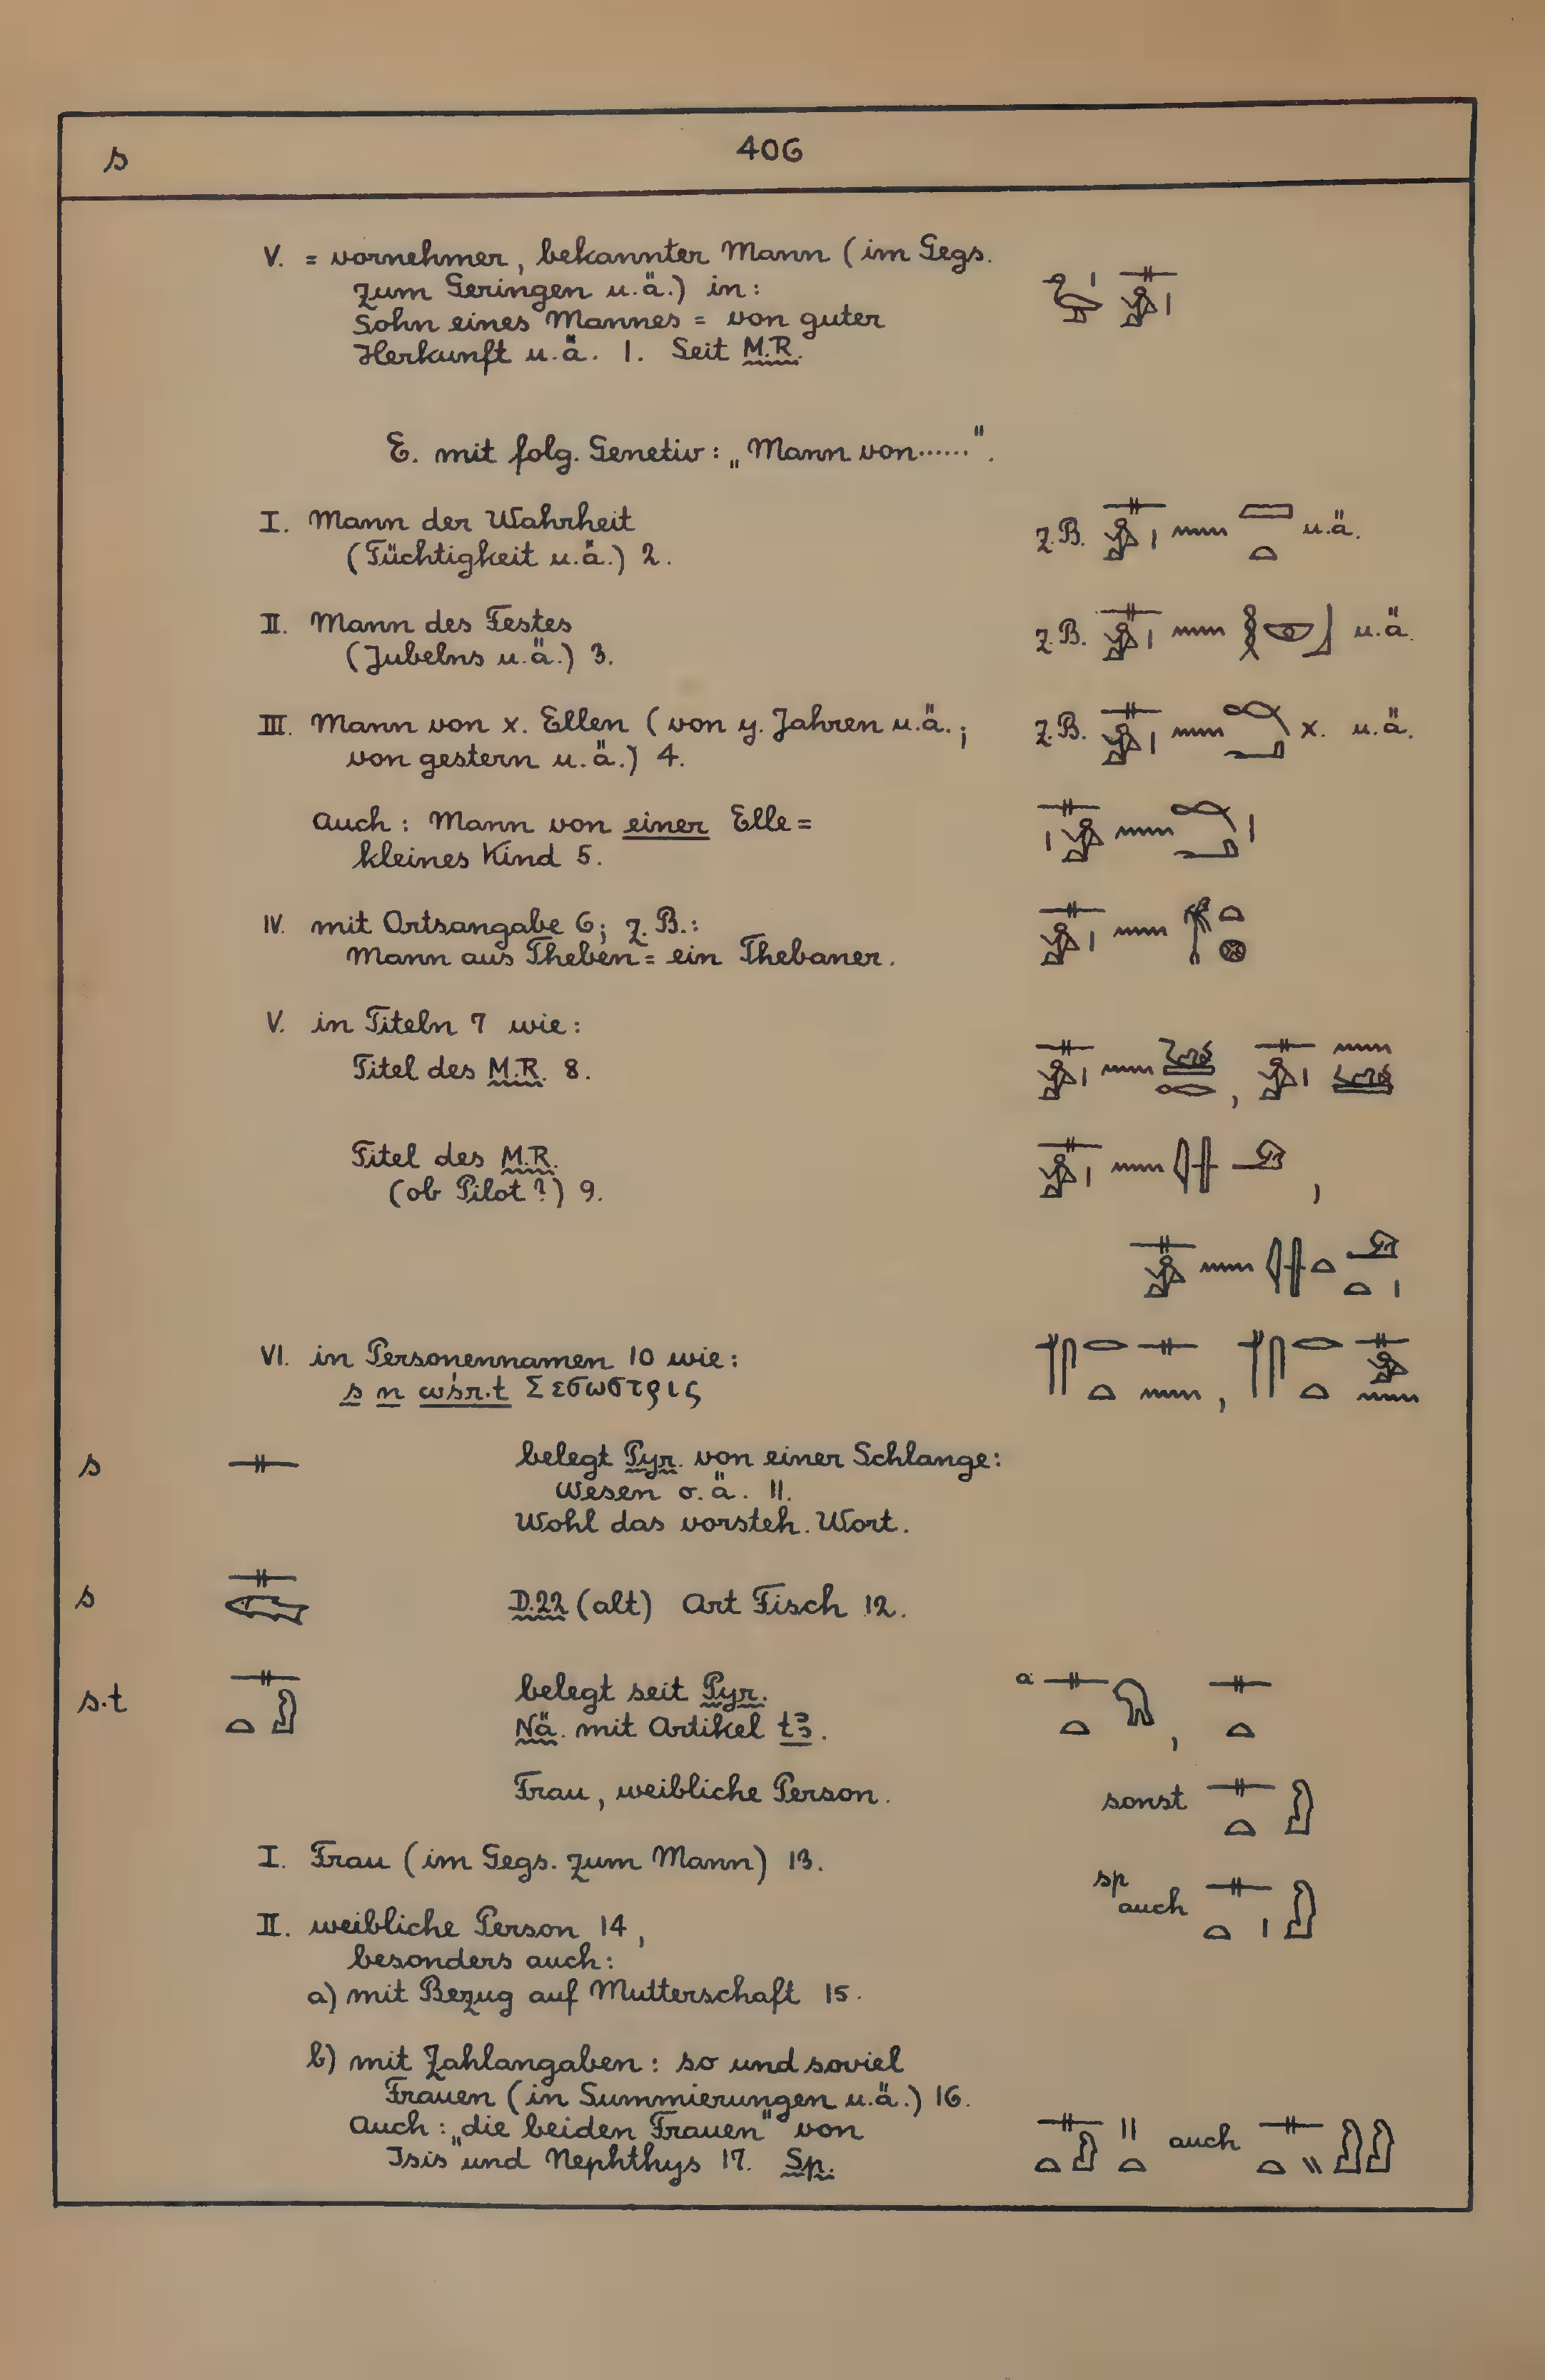 s 406
V. = vornehmer, bekannter Mann (im Gegs.
zum Geringen u.ä.) in:
Sohn eines Mannes = von guter
Herkunft u.ä. 1. Seit M.R.
E. mit folg. Genetiv: „Mann von......".
I. Mann der Wahrheit
(Tüchtigkeit u.ä.) 2.
z.B. u.ä.
II. Mann des Festes
(Jubelns u.ä.) 3.
z.B. u.ä.
III. Mann von x. Ellen (von y. Jahren u.ä.;
von gestern u.ä.) 4.
z.B. x. u.ä.
Auch: Mann von einer Elle =
kleines Kind 5.
IV. mit Ortsangabe 6; z.B.:
Mann aus Theben = ein Thebaner.
V. in Titeln 7 wie:
Titel des M.R. 8.
Titel des M.R.
(ob Pilot?) 9.
VI. in Personennamen 10 wie:
s n wśr.t Σεσωστρις
s belegt Pyr. von einer Schlange:
Wesen o.ä. 11.
Wohl das vorsteh. Wort.
s D.22 (alt) Art Fisch 12.
s.t belegt seit Pyr.
Nä. mit Artikel tꜣ.
a
Frau, weibliche Person.
sonst
I. Frau (im Gegs. zum Mann) 13.
sp
auch
II. weibliche Person 14,
besonders auch:
a) mit Bezug auf Mutterschaft 15.
b) mit Zahlangaben: so und soviel
Frauen (in Summierungen u.ä.) 16.
Auch: „die beiden Frauen" von
Isis und Nephthys 17. Sp.
auch